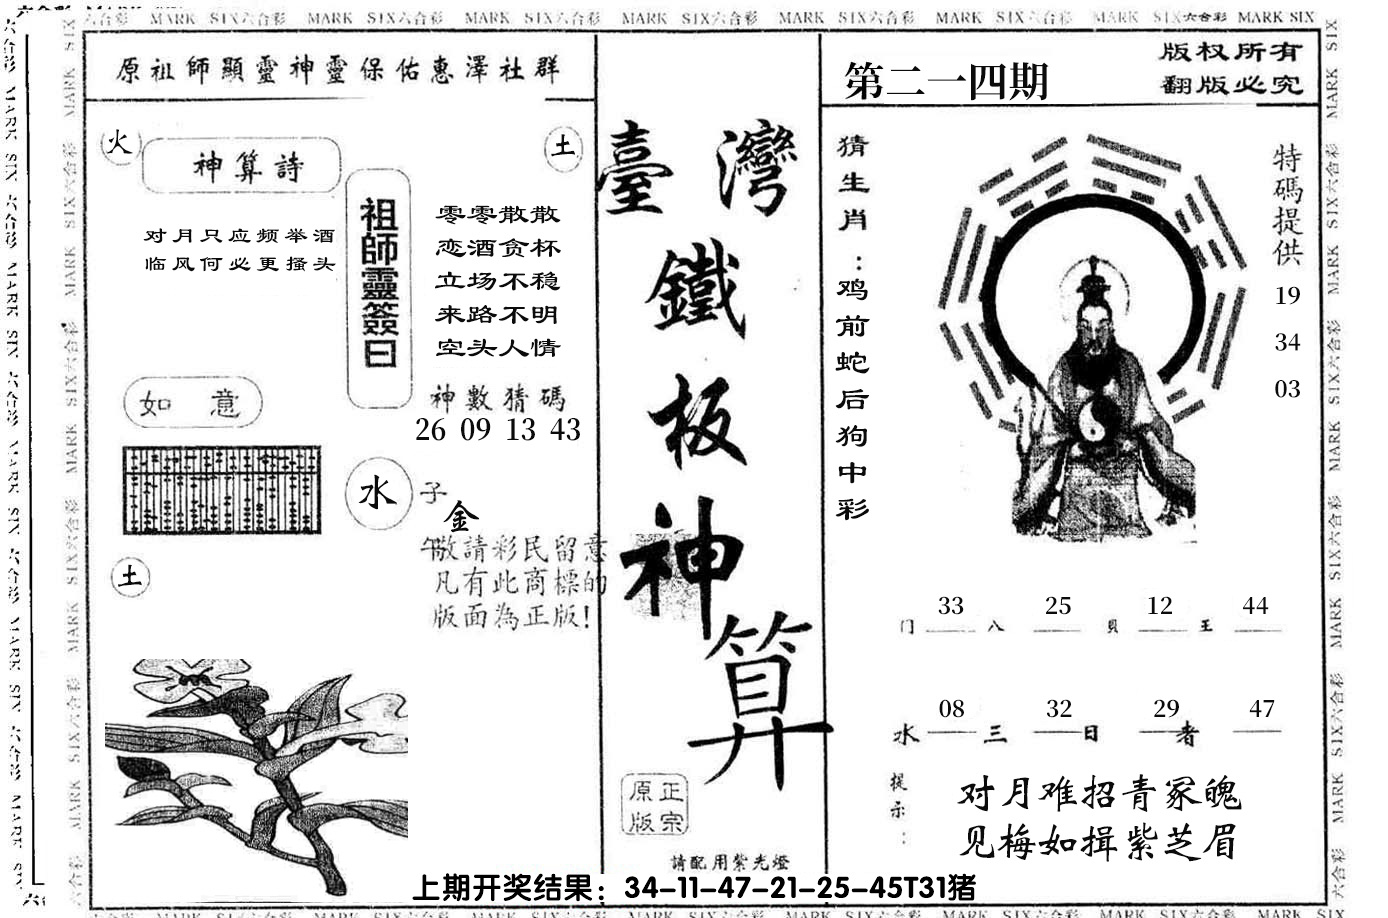 MARK SIX六合彩 MARK SIX六合彩 MARK SIX六合彩 MARK SIX六合彩 MARK SIX六合彩 MARK SIX六合彩 MARK SIX六合彩 MARK SIX
原祖師顯靈神靈保佑惠澤社群
火
神算詩
土
对月只应频举酒
临风何必更搔头
祖師靈簽曰
零零散散
恋酒贪杯
立场不稳
来路不明
空头人情
神數猜碼
26 09 13 43
如意
水
子
金
午
敬請彩民留意
凡有此商標的
版面為正版!
土
臺灣
鐵
板
神
算
正宗
原版
請配用紫光燈
第二一四期
版权所有
翻版必究
猜生肖:鸡前蛇后狗中彩
特碼提供
19
34
03
33 25 12 44
门 八 貝 王
08 32 29 47
水 三 日 者
提示:
对月难招青冢魄
见梅如揖紫芝眉
上期开奖结果：34-11-47-21-25-45T31猪